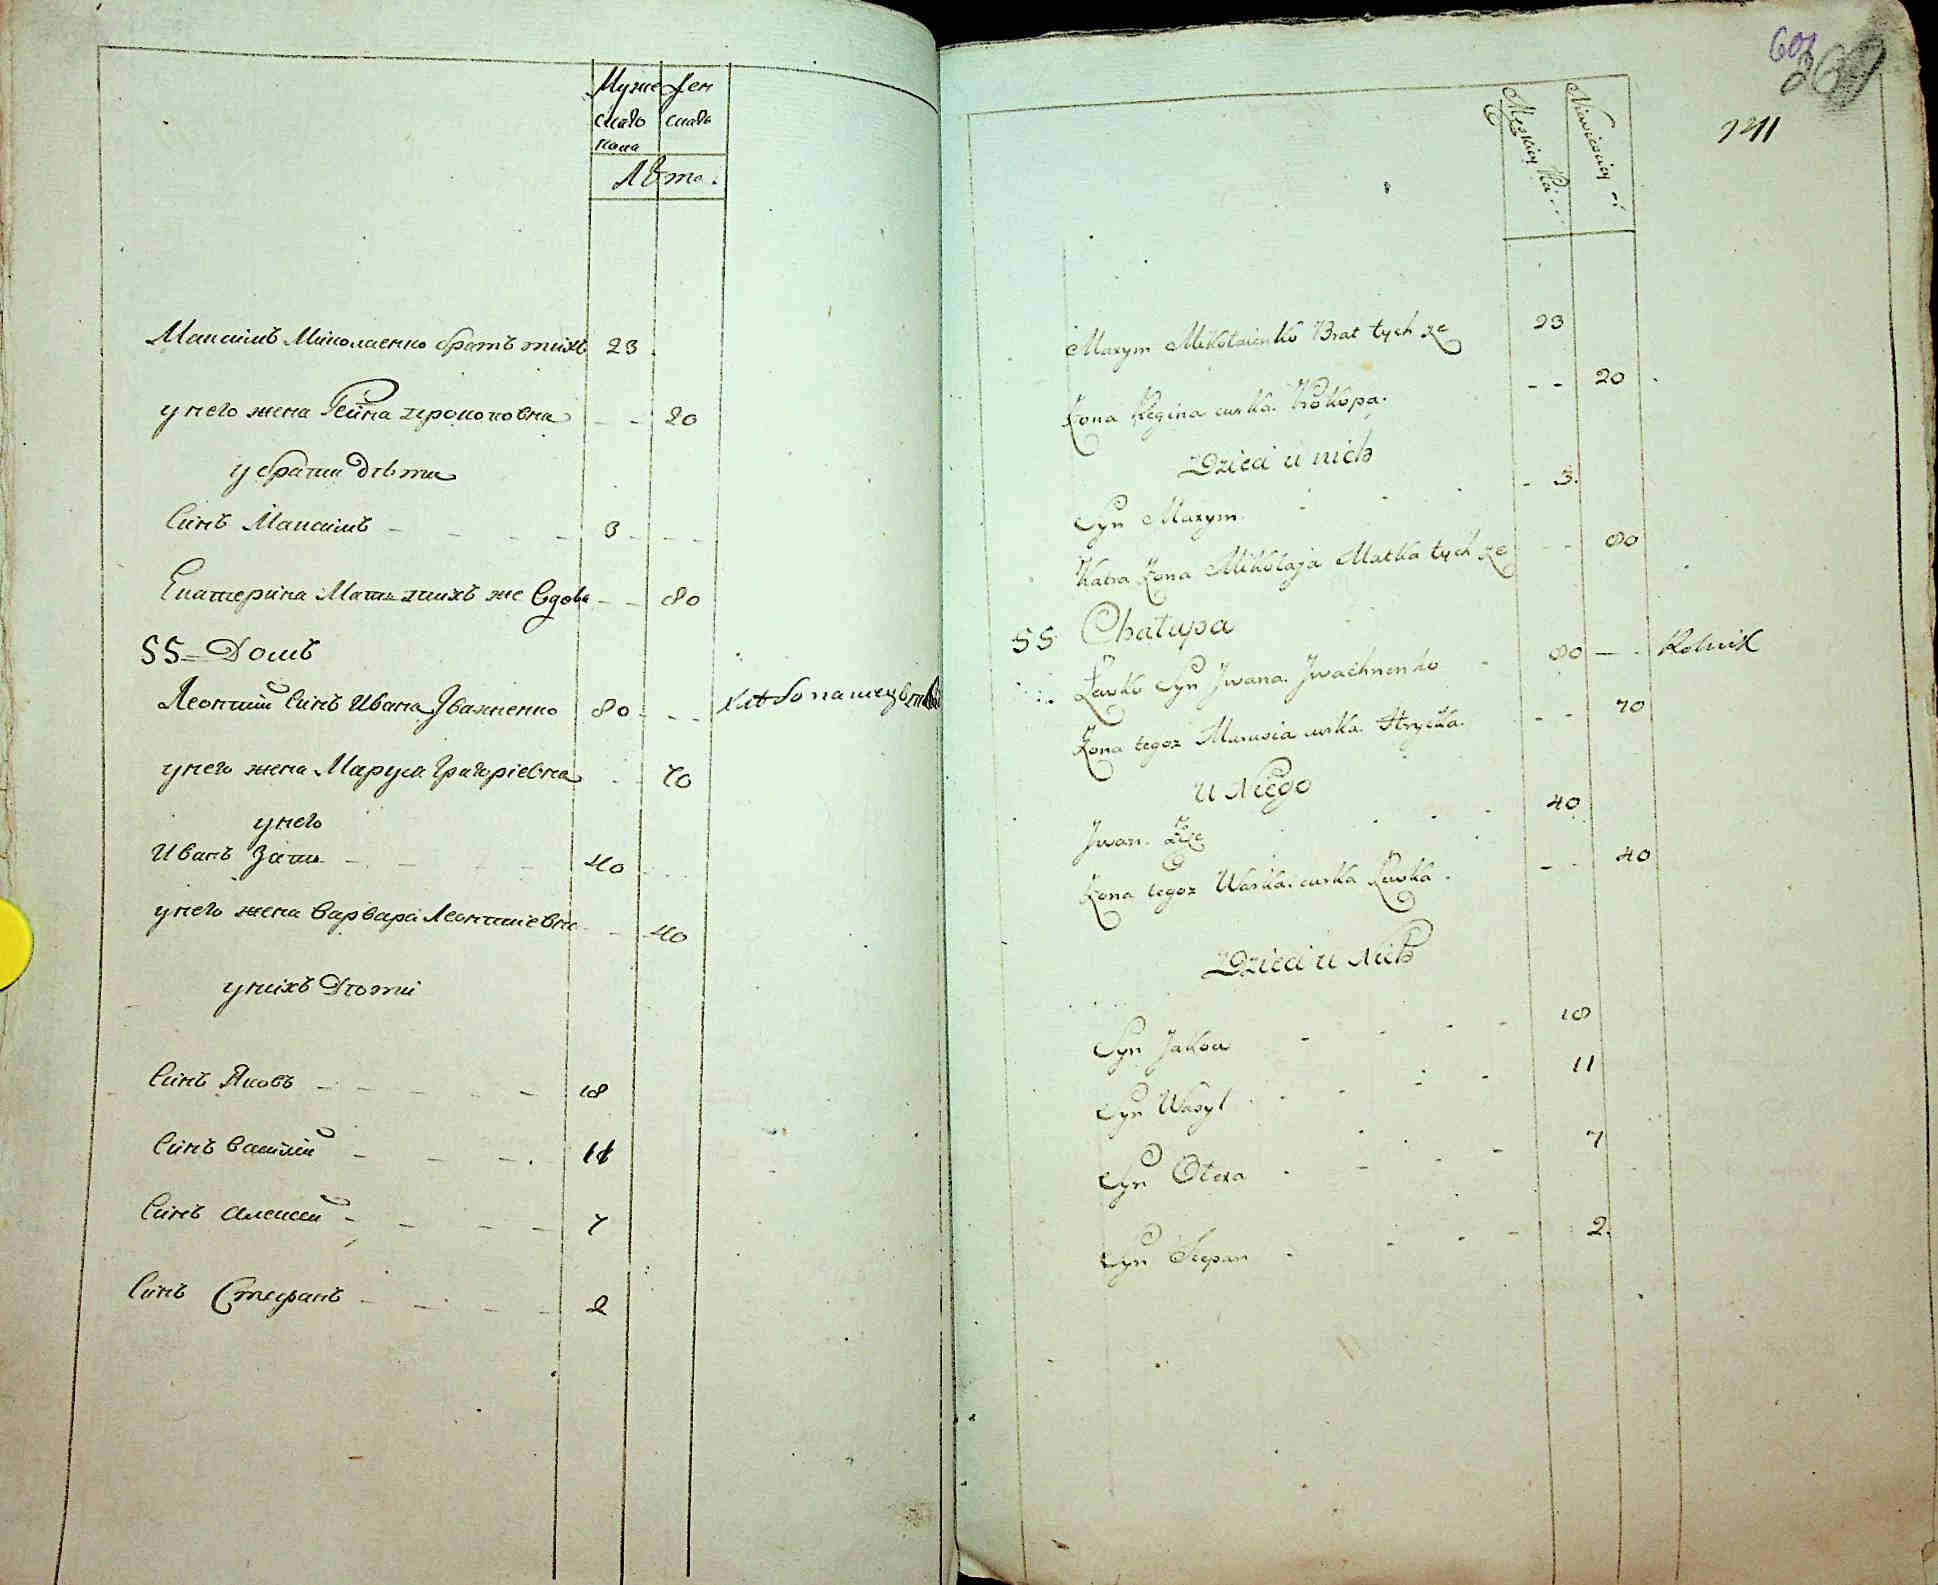 Муже Жен
скаго скаго
пола
Лѣта.
Максимъ Миколаенко братъ тихъ 23
у него жена Реина Прокоповна 20
у брати дѣти
Синъ Максимъ 3
Екатерина Мати тихъ же вдова 80
55 = Домъ
Леонтий Синъ Ивана Ивахненко 80 хлѣбопашецъ
у него жена Маруся Григорiевна 70
у него
Иванъ Зять 40
у него жена Варвара Леонтиевна 40
у нихъ Дѣти
Синъ Яковъ 18
Синъ Василий 11
Синъ Алексей 7
Синъ Стефанъ 2
601
1211
Męskiey Niewieściey
Maxym Mikołaienko Brat tych że 23
Żona Regina curka Prokopa. 20
Dzieci u nich
Syn Maxym 3.
Katra Żona Mikołaja Matka tych że 80
55 Chałupa
Lewko Syn Jwana Jwachnenko 80 Rolnik
Żona tegoż Marusia curka Hryćka. 70
U Niego
Jwan Zięć 40
Żona tegoż Warka curka Lewka. 40
Dzieci u Nich
Syn Jakow 18
Syn Wasyl 11
Syn Olexa 7
Syn Stepan 2.